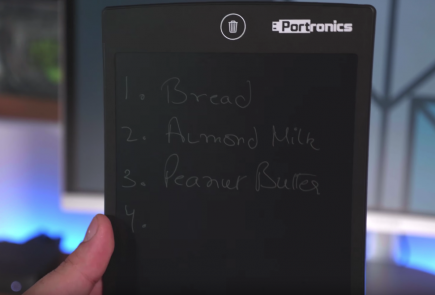 Portronics
1. Bread
2. Almond Milk
3. Peanut Butter
4.